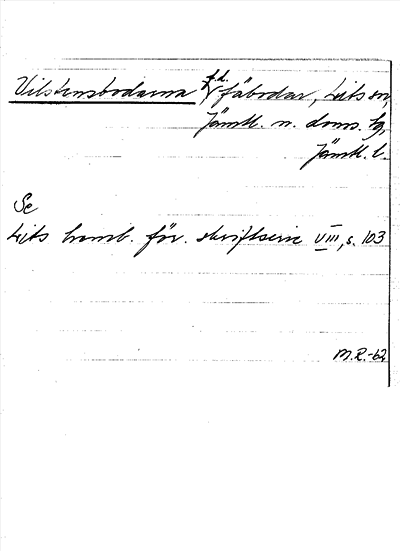 Vilstensbodarna f.d. fäbodar, Lits sn,
Jämtl. n. doms. tg,
Jämtl. l.
Se
Lits hemb. för. skriftserie VIII, s. 103
M.R.-62